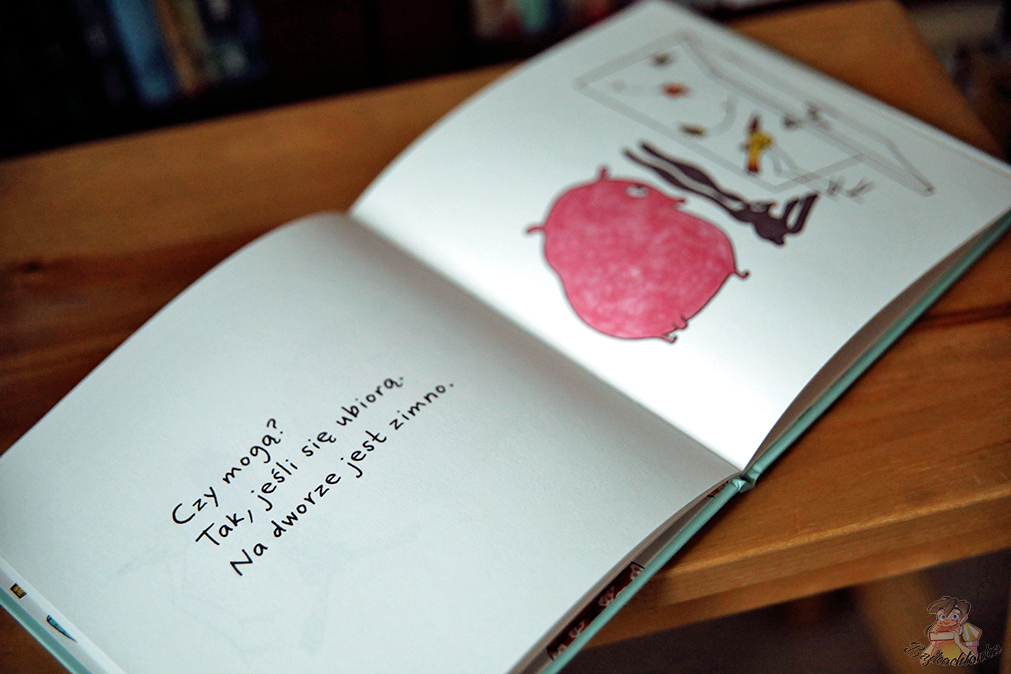 Czy mogą?
Tak, jeśli się ubiorą.
Na dworze jest zimno.